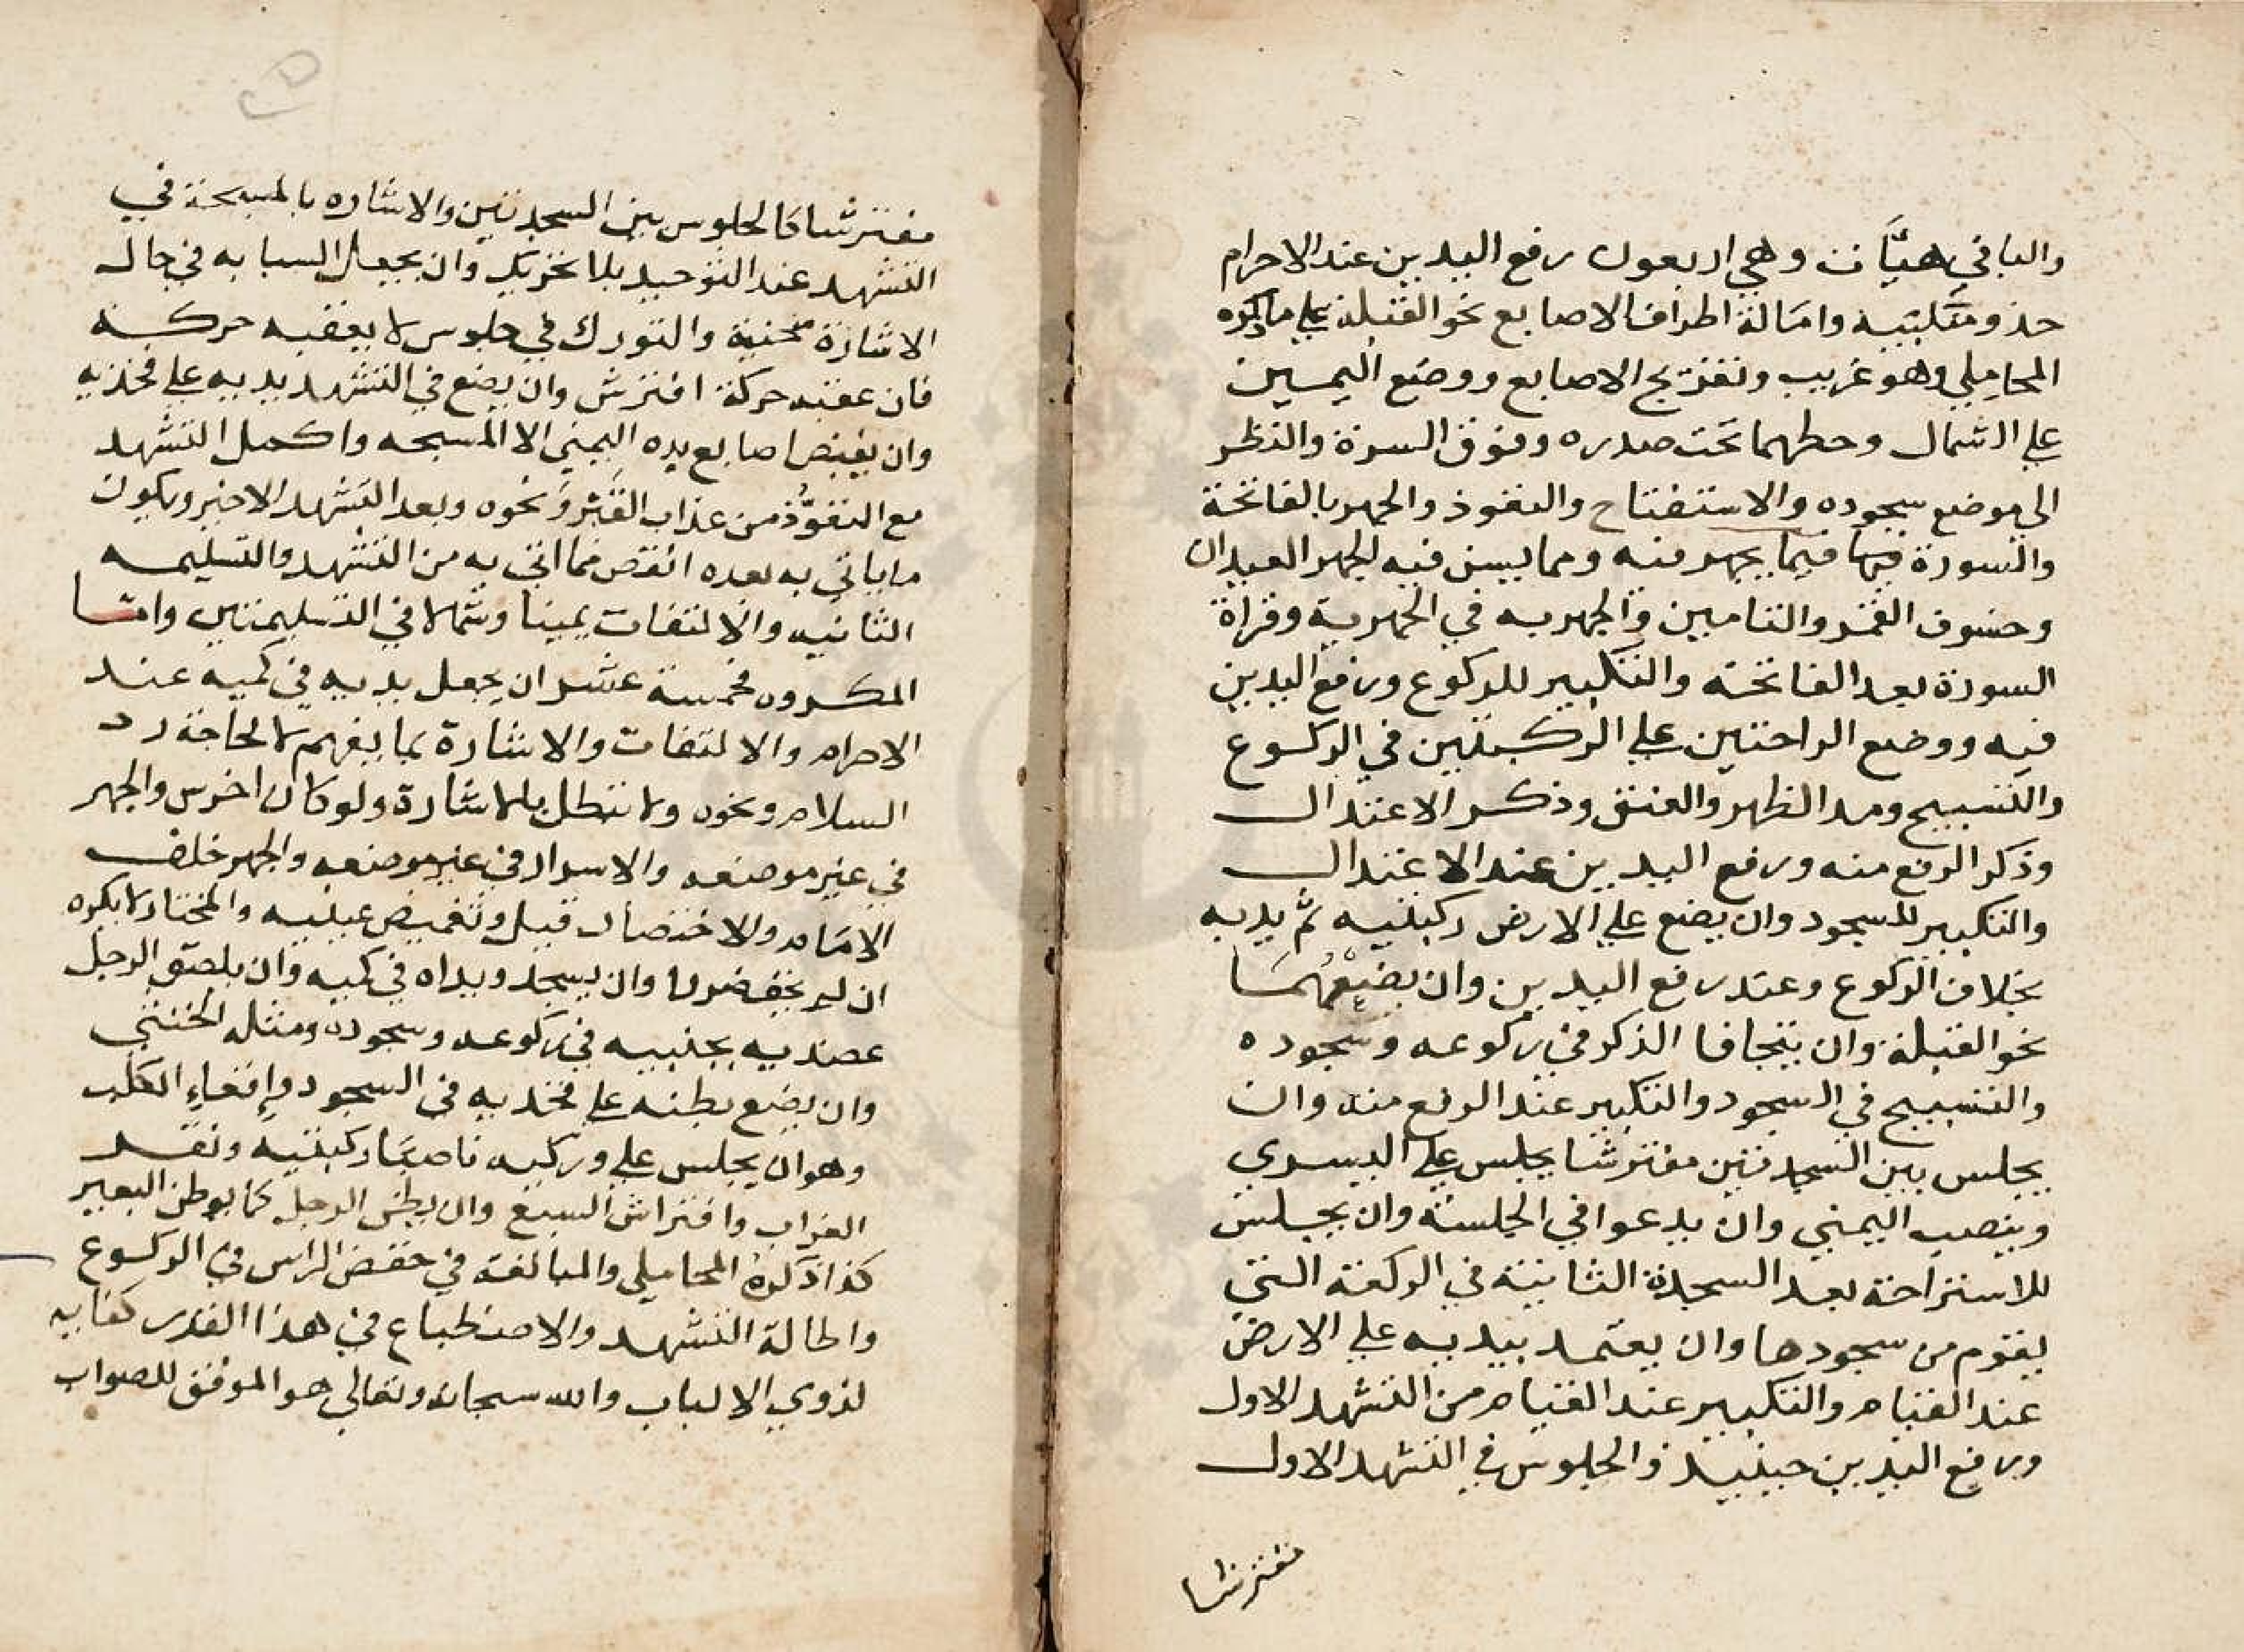 والباقي هيئات وهي اربعون رفع اليدين عند الاحرام
حذو منكبيه وامالة اطراف الاصابع نحو القبلة علي ما ذكره
المحاملي وهو غريب وتفريج الاصابع ووضع اليمين
علي الشمال وحطهما تحت صدره وفوق السرة والنظر
الي موضع سجوده والاستفتاح والتعوذ والجهر بالفاتحة
والسورة فيها فيما يجهر فيه ومما يسن فيه الجهر العيدان
وخسوف القمر والتامين والجهر به في الجهرية وقراة
السورة بعد الفاتحة والتكبير للركوع ورفع اليدين
فيه ووضع الراحتين علي الركبتين في الركوع
والتسبيح ومد الظهر والعنق وذكر الاعتدال
وذكر الرفع منه ورفع اليدين عند الاعتدال
والتكبير للسجود وان يضع علي الارض ركبتيه ثم يديه
بخلاف الركوع وعند رفع اليدين وان يضعهما
نحو القبلة وان يتجافا الذكر في ركوعه وسجوده
والتسبيح في السجود والتكبير عند الرفع منه وان
يجلس بين السجدتين مفترشا يجلس علي اليسري
وينصب اليمني وان يدعوا في الجلسة وان يجلس
للاستراحة بعد السجدة الثانية في الركعة التي
يقوم من سجودها وان يعتمد بيديه علي الارض
عند القيام والتكبير عند القيام من التشهد الاول
ورفع اليدين حينيذ والجلوس في التشهد الاول
مفترشا
مفترشا كالجلوس بين السجدتين والاشاره بالمسبحة في
التشهد عند التوحيد بلا تحريك وان يجعل السبابه في حال
الاشارة منحنية والتورك في جلوس لا يعقبه حركة
فان عقبه حركة افترش وان يضع في التشهد يديه علي فخذيه
وان يقبض اصابع يده اليمني الا المسبحه واكمل التشهد
مع التعوُّذ من عذاب القبر ونحوه وبعد التشهد الاخير ويكون
ما ياتي به بعده انقص مما اتي به من التشهد والتسليمه
الثانيه والالتفات يمينا وشمالا في التسليمتين وامّا
المكروه فخمسة عشر ان يجعل يديه في كميه عند
الاحرام والالتفات والاشارة بما يفهم لا لحاجة رد
السلام ونحوه ولا تبطل بالاشارة ولو كان اخرس والجهر
في غير موضعه والاسرار في غير موضعه والجهر خلف
الامام والاختصار قيل وتغميض عينيه والمختار لا يكره
ان لم يخف ضررا وان يسجد ويداه في كميه وان يلصق الرجل
عضديه بجنبيه في ركوعه وسجوده ومثله الخنثي
وان يضع بطنه علي فخديه في السجود وإقعاء الكلب
وهو ان يجلس علي وركيه ناصبا ركبتيه ونقر
الغراب وافتراش السبع وان يوطن الرجل كما يوطن البعير
كذا ذكره المحاملي والمبالغة في خفض الراس في الركوع
واطالة التشهد والاضطباع في هذا القدر كفايه
لذوي الالباب والله سبحانه وتعالي هو الموفق للصواب